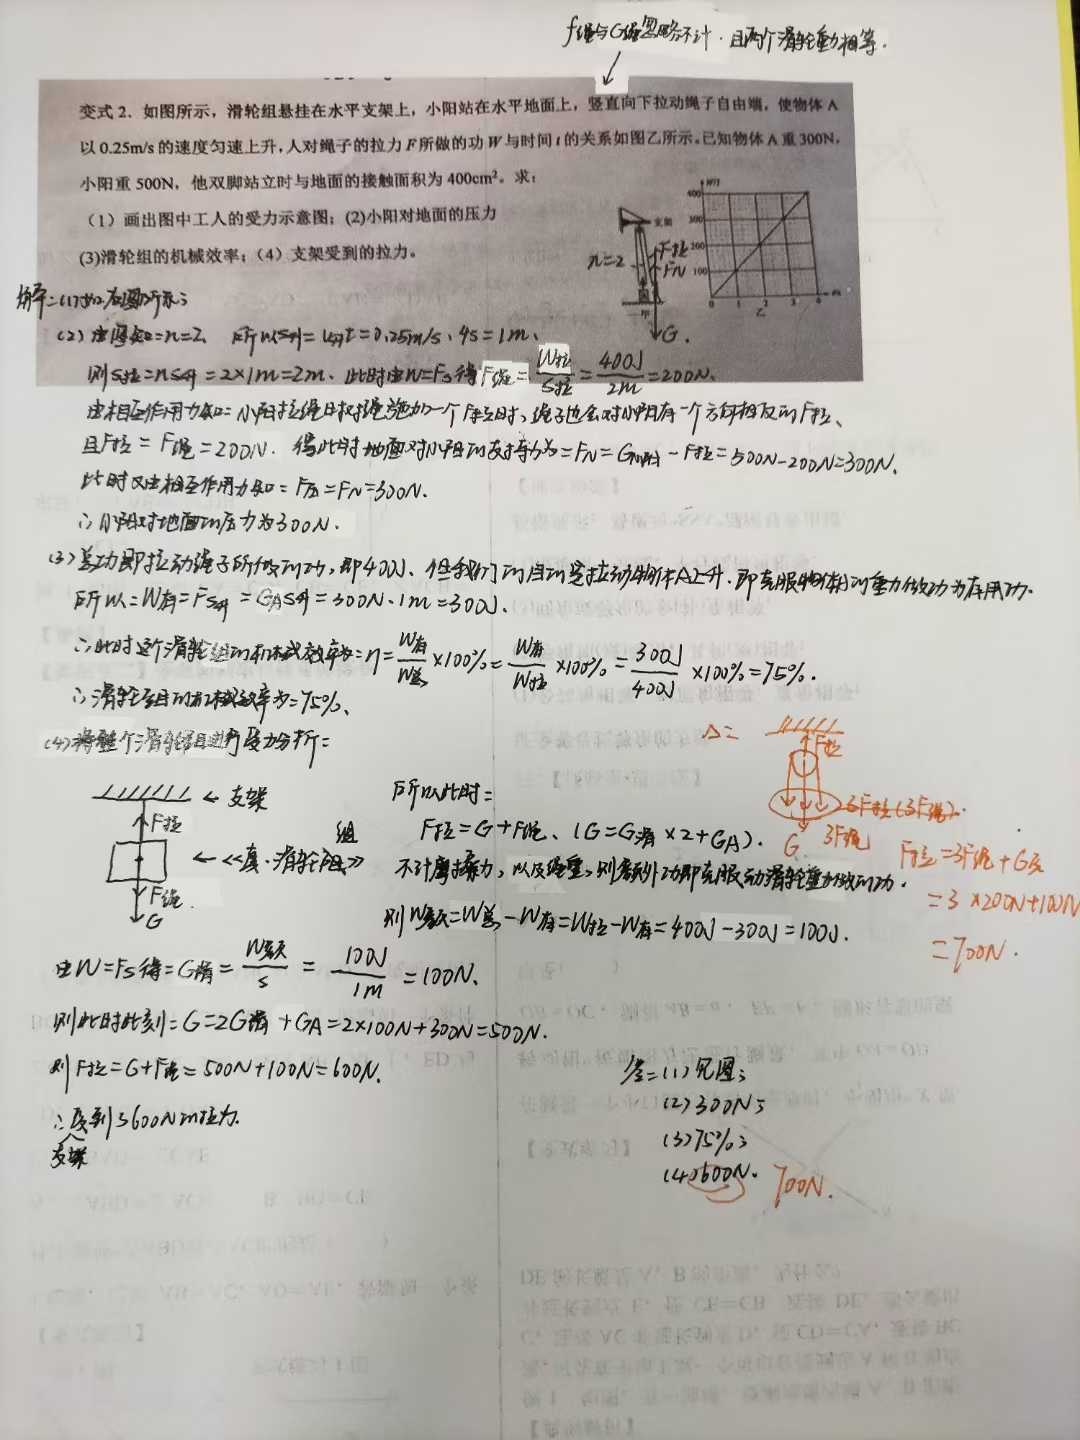 f绳与G绳忽略不计.且两个滑轮重力相等.
变式2. 如图所示，滑轮组悬挂在水平支架上，小阳站在水平地面上，竖直向下拉动绳子自由端，使物体A
以0.25m/s的速度匀速上升，人对绳子的拉力F所做的功W与时间t的关系如图乙所示。已知物体A重300N，
小阳重500N，他双脚站立时与地面的接触面积为400cm²。求：
（1）画出图中工人的受力示意图；(2)小阳对地面的压力
(3)滑轮组的机械效率；（4）支架受到的拉力。
支架
n=2
F拉
FN
G.
甲
W/J
400
300
200
100
0 1 2 3 4
乙
解=(1)如右图所示;
(2) 由图知=n=2, 所以S升=V升t=0.25m/s·4s=1m、
则S拉=nS升=2×1m=2m、此时由W=Fs得F绳=W拉/S拉=400J/2m=200N、
由相互作用力知=小阳拉绳时对绳施加一个F拉时,绳子也会对小阳有一个方向相反的F拉、
且F拉=F绳=200N. 得此时地面对小阳的支持力为=FN=G小阳-F拉=500N-200N=300N、
此时又由相互作用力知=F压=FN=300N.
∴小阳对地面的压力为300N.
(3)总功即拉动绳子所做的功,即400J、但我们的目的是拉动物体A上升、即克服物体A的重力做功为有用功.
所以=W有=Fs升=GAS升=300N·1m=300J.
∴此时这个滑轮组的机械效率为=η=W有/W总×100%=W有/W拉×100%=300J/400J×100%=75%.
∴滑轮组的机械效率为=75%、
(4)将整个滑轮组进行受力分析=
←支架
F拉
←《真·滑轮组》
F绳
G
所以此时=
F拉=G+F绳、(G=G滑×2+GA).
不计摩擦力,以及绳重,则额外功即克服动滑轮重力做的功.
则W额=W总-W有=W拉-W有=400J-300J=100J.
由W=Fs得=G滑=W额/s=100J/1m=100N、
则此时此刻=G=2G滑+GA=2×100N+300N=500N.
则F拉=G+F绳=500N+100N=600N.
∴支架受到了600N的拉力.
△=
F拉
3F拉(3F绳).
G 3F绳
F拉=3F绳+G定
=3×200N+100N
=700N.
答=(1)见图;
(2)300N;
(3)75%;
(4)600N. 700N.